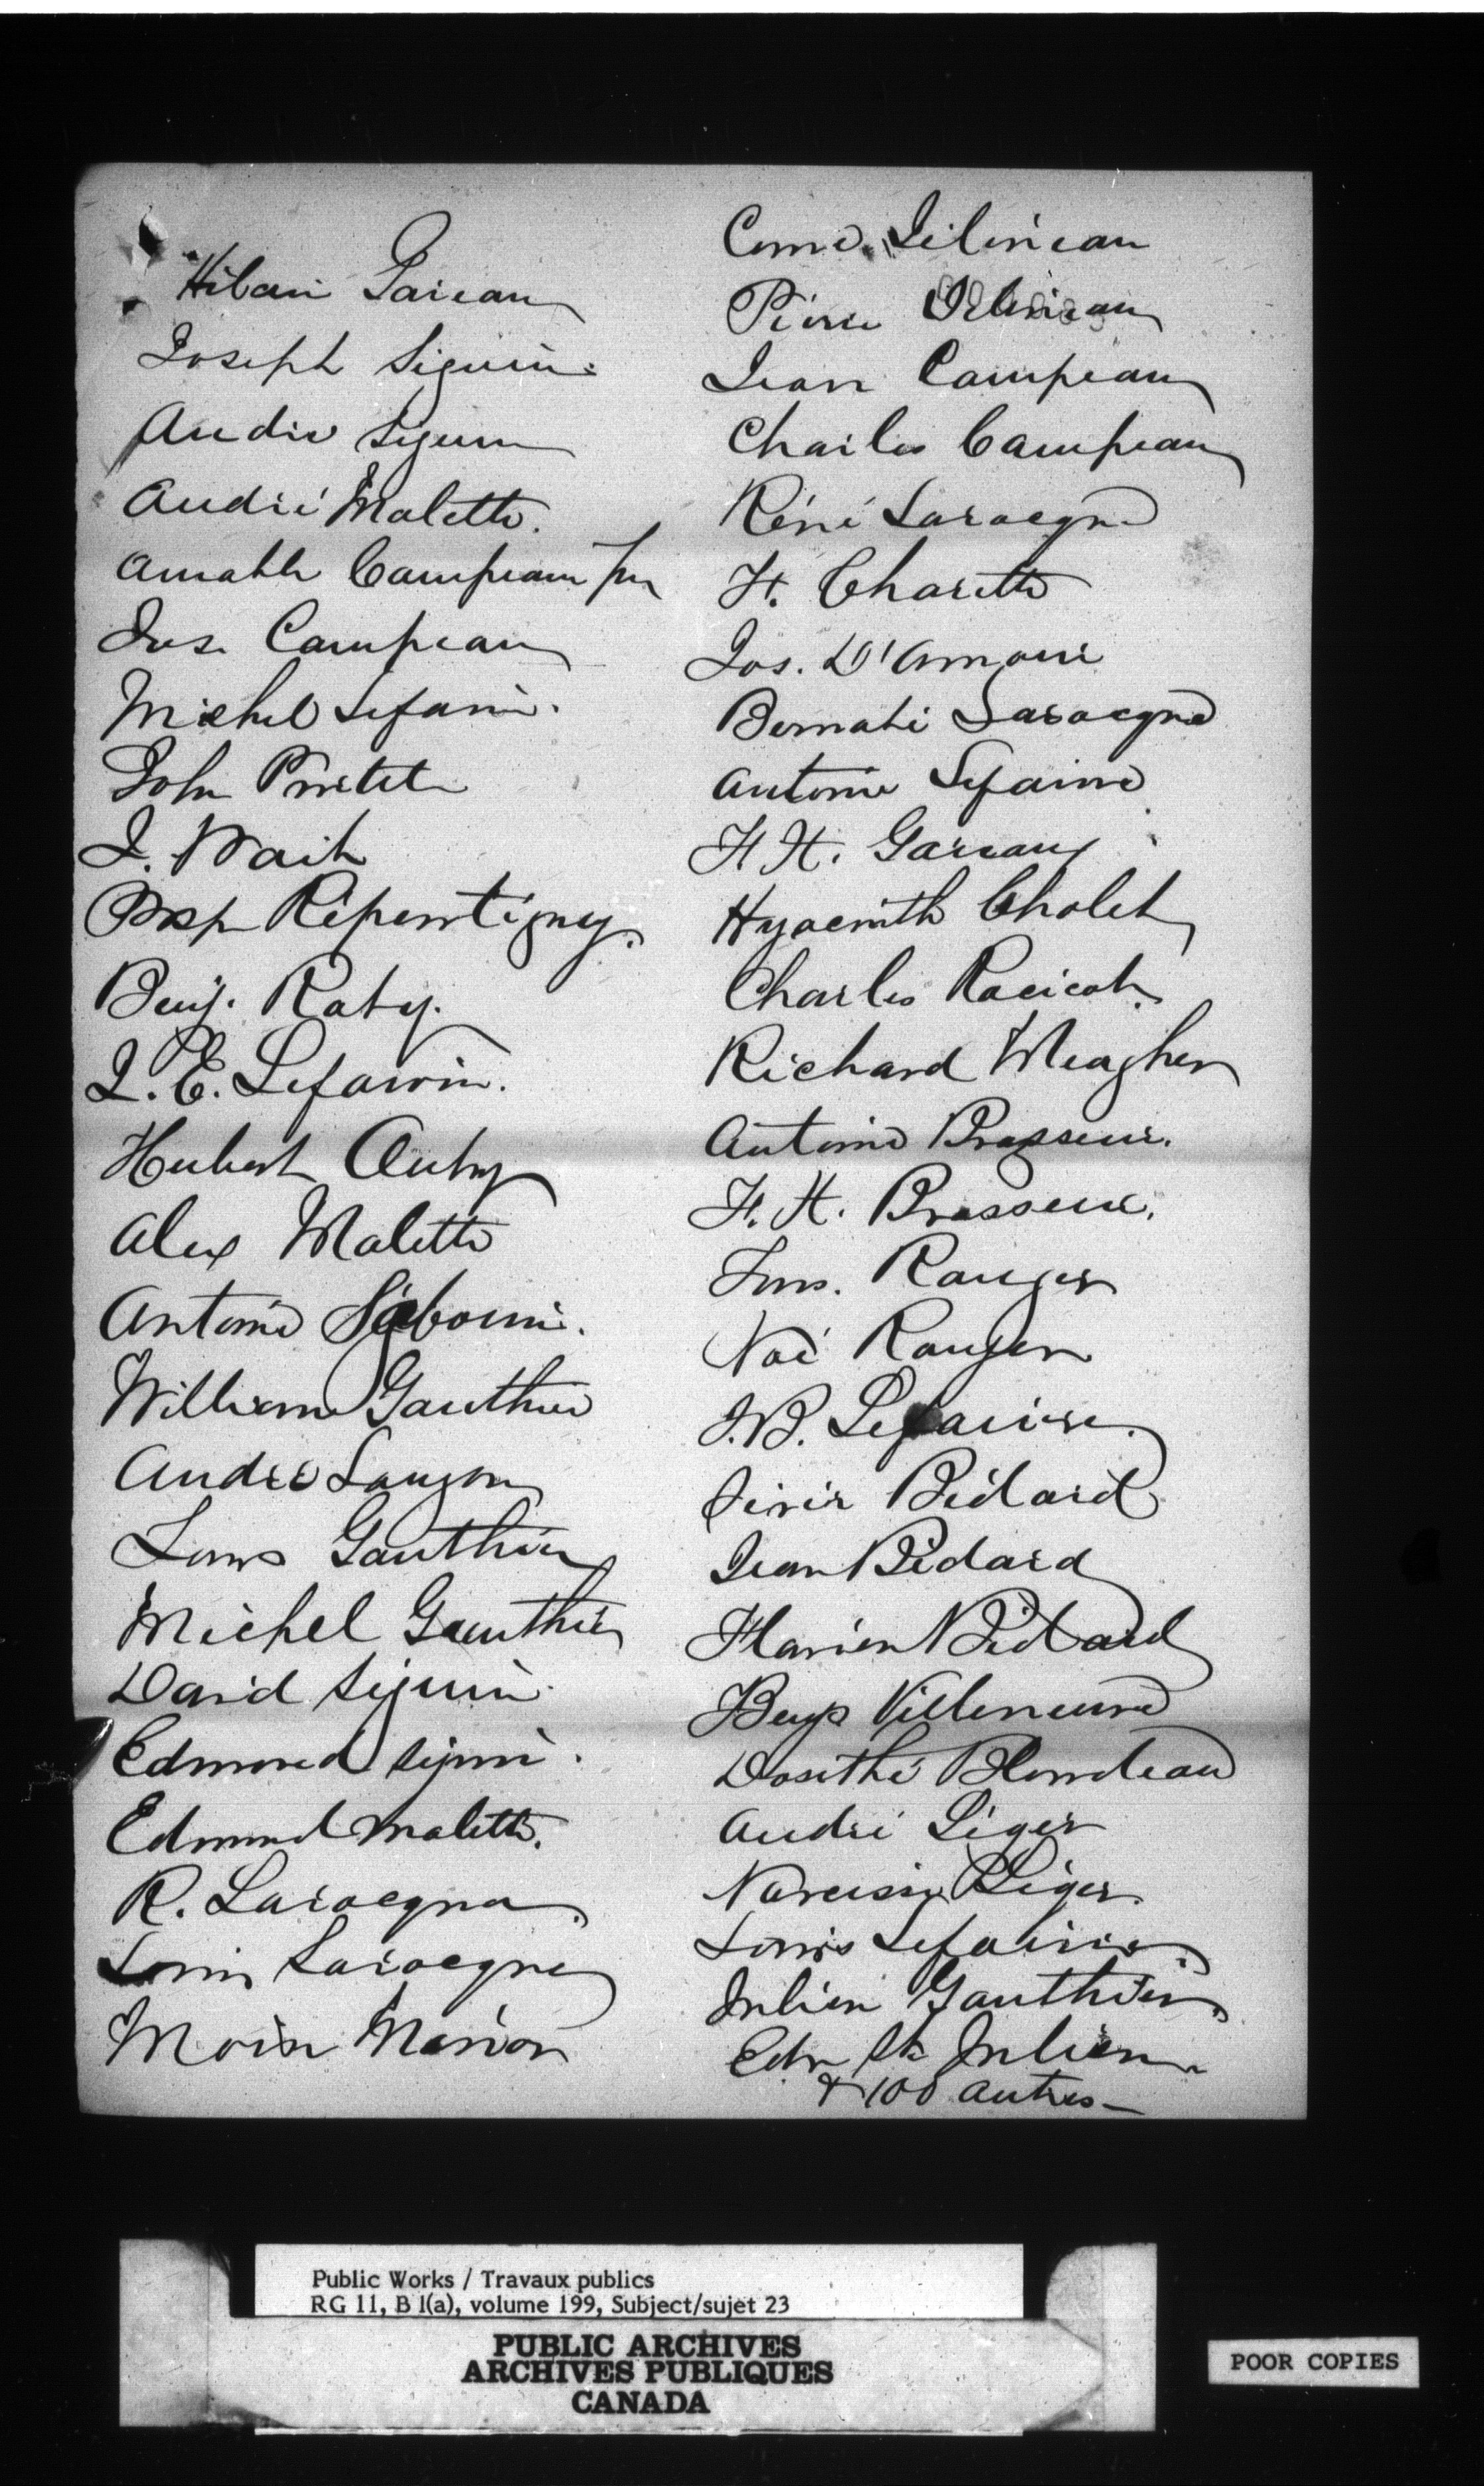 Hilaire Gareau
Joseph Séguin
André Séguin
André Malette.
Amable Campeau
Jos. Campeau
Michel Lefaivre.
John Pritch
J. Wait
Prosp Répentigny.
Benj. Raby.
J. E. Lefaivre.
Hubert Aubry
Alex Malette
Antoine
William Gauthier
André Lauzon
Louis Gauthier
Michel Gauthier
David Séguin
Edmond Séguin.
Edmond Malette.
R. Larocque.
Louis Larocque
Moise Marion
Come Gélineau
Pierre Gélineau
Jean Campeau
Charles Campeau
Réné Larocque
F. Charette
Jos. D'Amour
Bernabé Larocque
Antoine Lefaivre
F. X. Gareau
Hyacinth Cholet
Charles Racicot
Richard Meagher
Antoine Brasseur.
F. X. Brasseur.
Frs. Ranger
Noé Ranger
J.B. Lefaivre.
Sévère Bédard
Jean Bédard
Flavien Bédard
Benj Villeneuve
Dosithé Blondeau
André Léger
Narcisse Léger.
Louis Lefaivre.
Julien Gauthier
Edm St Julien
& 100 autres—
Public Works / Travaux publics
RG 11, B 1(a), volume 199, Subject/sujet 23
PUBLIC ARCHIVES
ARCHIVES PUBLIQUES
CANADA
POOR COPIES